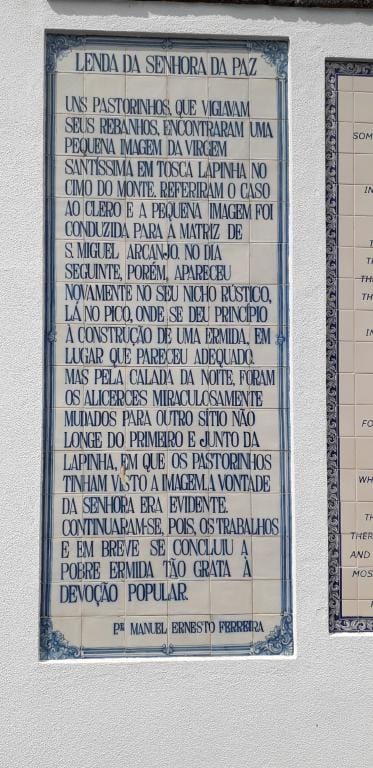 LENDA DA SENHORA DA PAZ
UNS PASTORINHOS, QUE VIGIAVAM
SEUS REBANHOS, ENCONTRARAM UMA
PEQUENA IMAGEM DA VIRGEM
SANTÍSSIMA EM TOSCA LAPINHA NO
CIMO DO MONTE. REFERIRAM O CASO
AO CLERO E A PEQUENA IMAGEM FOI
CONDUZIDA PARA A MATRIZ DE
S. MIGUEL ARCANJO. NO DIA
SEGUINTE, PORÉM, APARECEU
NOVAMENTE NO SEU NICHO RÚSTICO,
LÁ NO PICO, ONDE SE DEU PRINCÍPIO
À CONSTRUÇÃO DE UMA ERMIDA, EM
LUGAR QUE PARECEU ADEQUADO.
MAS PELA CALADA DA NOITE, FORAM
OS ALICERCES MIRACULOSAMENTE
MUDADOS PARA OUTRO SÍTIO NÃO
LONGE DO PRIMEIRO E JUNTO DA
LAPINHA, EM QUE OS PASTORINHOS
TINHAM VISTO A IMAGEM. A VONTADE
DA SENHORA ERA EVIDENTE.
CONTINUARAM-SE, POIS, OS TRABALHOS
E EM BREVE SE CONCLUIU A
POBRE ERMIDA TÃO GRATA À
DEVOÇÃO POPULAR.
PE MANUEL ERNESTO FERREIRA
SOM
IN
TH
THE
TH
IN
FO
WH
TH
THER
AND
MOS